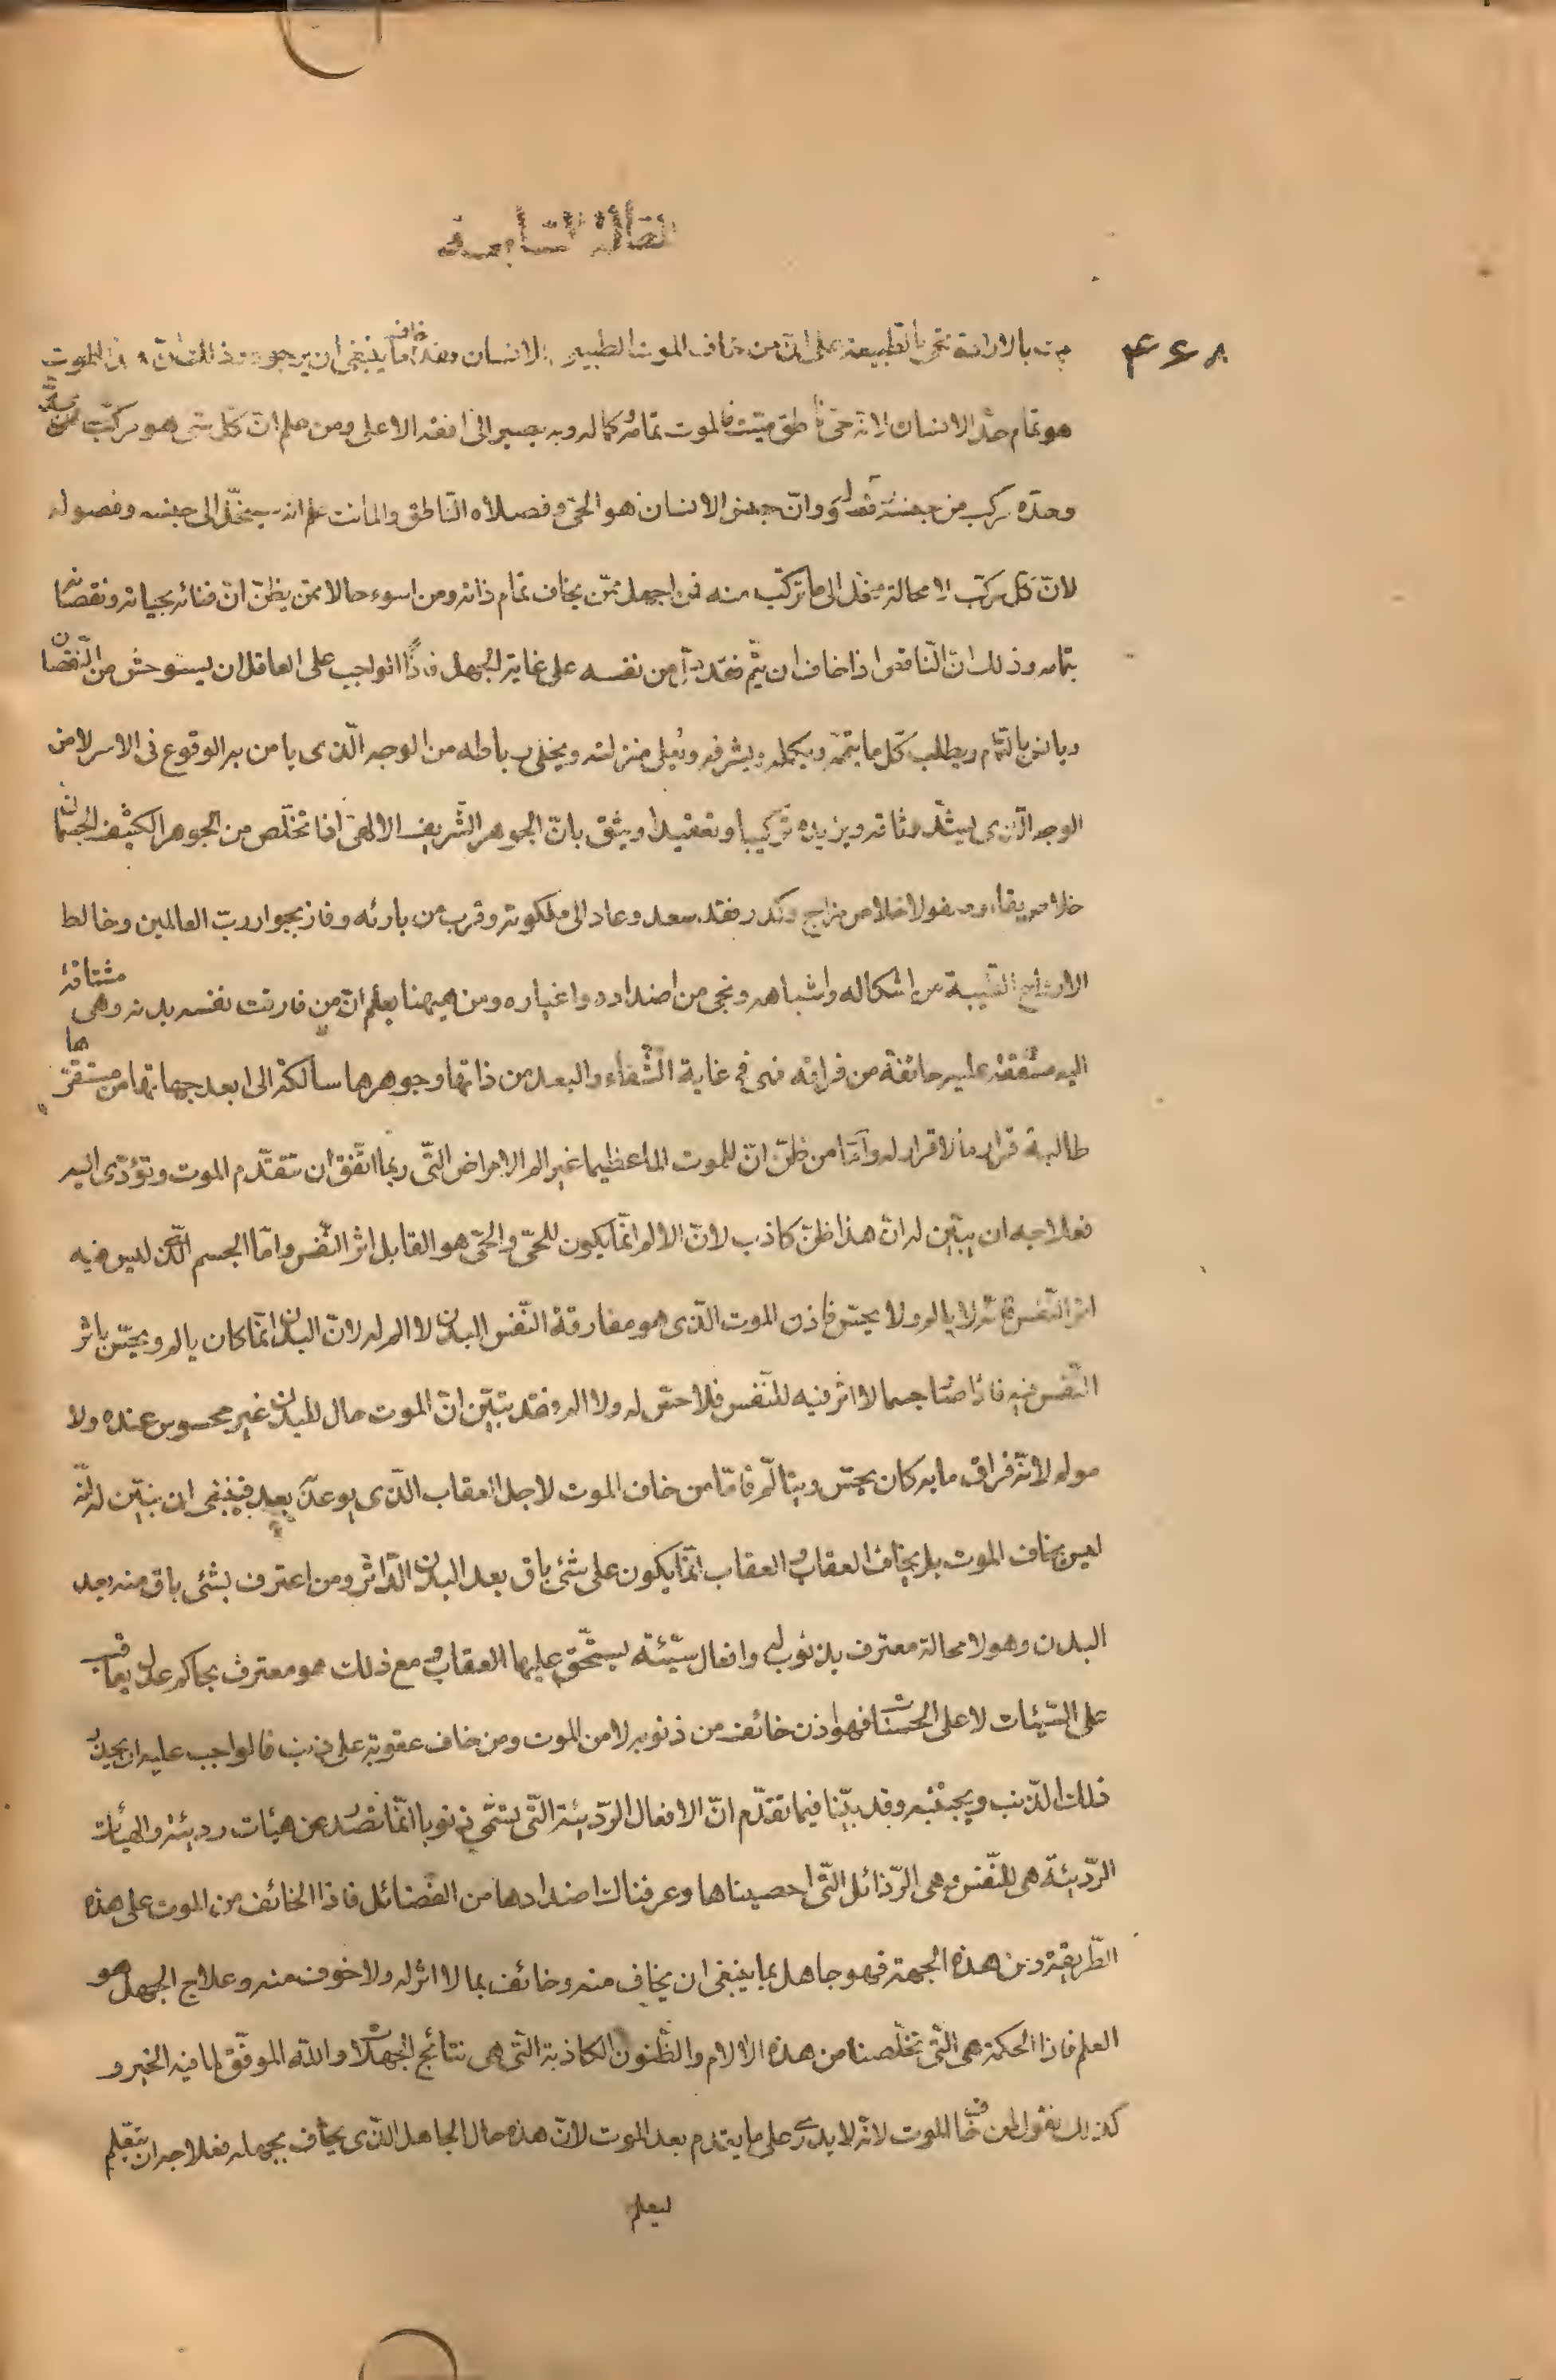 المقالة السابعة
٤٦٨
مت بالارادة تحى بالطبيعة على ان من خاف الموت الطبيعى للانسان فقد خاف ما ينبغى ان يرجوه وذلك ان هذا الموت
هو تمام حد الانسان لانه حىّ ناطق ميّت فالموت تمامه وكماله وبه يصير الى افقه الاعلى ومن علم ان كل شى هو مركّب من حدّه
وحدّه مركب من جنسه وفصوله وانّ جنس الانسان هو الحىّ وفصلاه النّاطق والمائت علم انه سينحلّ الى جنسه وفصوله
لانّ كلّ مركّب لا محالة منحل الى ما تركّب منه فمن اجهل ممّن يخاف تمام ذاته ومن اسوء حالا ممّن يظنّ انّ فنائه بحياته ونقصانه
بتمامه وذلك انّ النّاقص اذا خاف ان يتمّ فقد دلّ من نفسه على غاية الجهل فاذًا الواجب على العاقل ان يستوحش من النّقصان
ويانس بالتّمام ويطلب كلّ ما يتمّه ويكمله ويشرفه ويعلى منزلته ويخلى رباطه من الوجه الّذى يامن به الوقوع فى الاسر لا من
الوجه الّذى يشدّ وثاقه ويزيده تركيبا وتعقيدا ويثق بانّ الجوهر الشّريف الالهىّ اذا تخلّص من الجوهر الكثيف الجسمانى
خلاص بقاء وصفو لا خلاص مزاج وكدر فقد سعد وعاد الى ملكوته وقرب من بارئه وفاز بجوار ربّ العالمين وخالط
الارواح الطّيّبة من اشكاله واشباهه ونجى من اضداده واغياره ومن هيهنا يعلم انّ من فارقت نفسه بدنه وهى مشتاقة
اليه مشفقة عليه خائفة من فراقه فهى فى غاية الشّقاء والبعد من ذاتها وجوهرها سالكة الى ابعد جهاتها من مستقرّها
طالبة قرار ما لا قرار له وامّا من ظنّ انّ للموت الما عظيما غير الم الامراض الّتى ربما اتّفق ان تتقدّم الموت وتؤدّى اليه
فعلاجه ان يبيّن له انّ هذا ظنّ كاذب لانّ الالم انّما يكون للحىّ والحىّ هو القابل اثر النّفس وامّا الجسم الّذى ليس فيه
اثر النّفس فانّه لا يالم ولا يحسّ فاذن الموت الّذى هو مفارقة النّفس البدن لا الم له لانّ البدن انّما كان يالم ويحسّ باثر
النّفس فيه فاذا صار جسما لا اثر فيه للنّفس فلا حسّ له ولا الم وفقد يتبيّن انّ الموت حال للبدن غير محسوس عنده ولا
مولم لانّه فراق ما به كان يحسّ ويتالّم فامّا من خاف الموت لاجل العقاب الّذى يوعد بعد فينبغى ان نبيّن له انّه
ليس يخاف الموت بل يخاف العقاب والعقاب انّما يكون على شئ باق بعد البدن الدّاثر ومن اعترف بشئ باق منه بعد
البدن وهو لا محالة معترف بذنوب له وافعال سيّئة يستحقّ عليها العقاب ومع ذلك هو معترف بحاكم عدل يعاقب
على السّيّئات لا على الحسنات فهو اذن خائف من ذنوبه لا من الموت ومن خاف عقوبة على ذنب فالواجب عليه ان يحذر
ذلك الذّنب ويجتنبه وقد بيّنّا فيما تقدّم انّ الافعال الرّديئة الّتى تسمّى ذنوبا انّما تصدر عن هيئات رديئة والهيئات
الرّديئة هى للنّفس وهى الرّذائل الّتى احصيناها وعرفناك اضدادها من الفضائل فاذا الخائف من الموت على هذه
الطّريقة ومن هذه الجهة فهو جاهل بما ينبغى ان يخاف منه وخائف بما لا اثر له ولا خوف منه وعلاج الجهل هو
العلم فاذا الحكمة هى الّتى تخلّصنا من هذه الالام والظّنون الكاذبة الّتى هى نتائج الجهالات والله الموفّق لما فيه الخير و
كذلك نقول لمن خاف الموت لانّه لا يدرى على ما يقدم بعد الموت لانّ هذه حال الجاهل الّذى يخاف بجهله فعلاجه ان يتعلّم
ليعلم